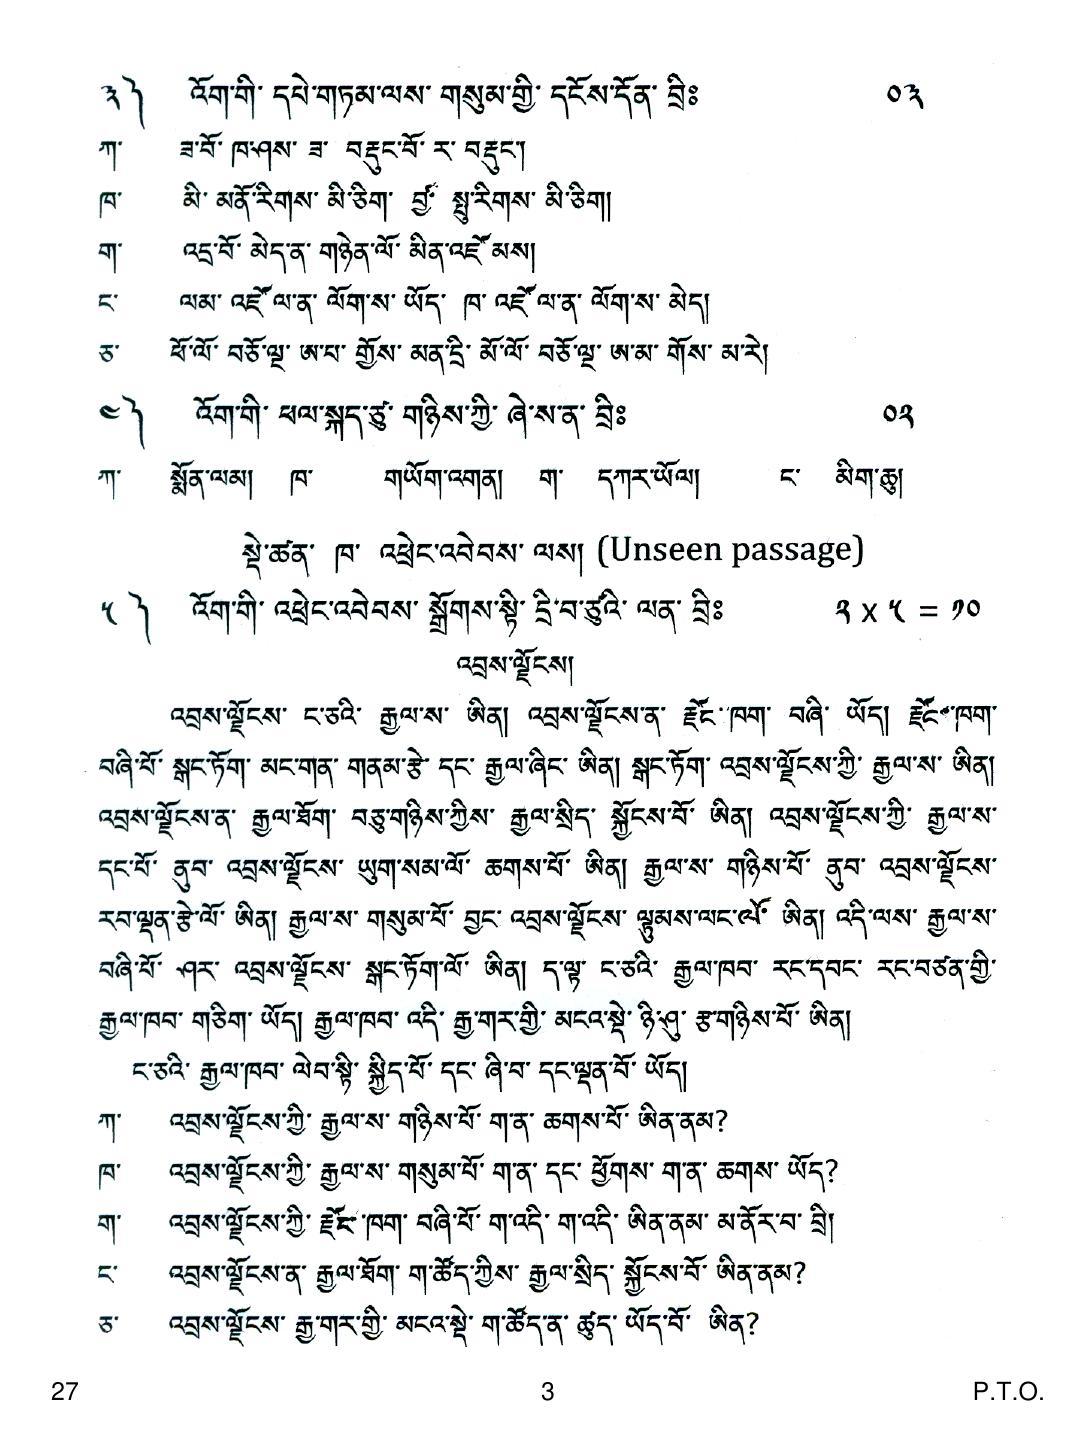 ༣༽ འོག་གི་ དཔེ་གཏམ་ལས་ གསུམ་གྱི་ དངོས་དོན་ བྲིཿ ༠༣
ཀ་ ཟ་བོ་ ཁ་ཤས་ ཟ་ བརྡུང་བོ་ ར་ བརྡུང་།
ཁ་ མི་ མནོ་རིགས་ མི་ཅིག་ བྱ་ སྤུ་རིགས་ མི་ཅིག།
ག་ འདྲ་བོ་ མེད་ན་ གཉེན་ལོ་ མིན་འཛོམས།
ང་ ལམ་ འཛོལ་ན་ ལོག་ས་ ཡོད་ ཁ་ འཛོལ་ན་ ལོག་ས་ མེད།
ཅ་ ཕོ་ལོ་ བཅོ་ལྔ་ ཨ་པ་ གྱོས་ མན་དྲི་ མོ་ལོ་ བཅོ་ལྔ་ ཨ་མ་ གོས་ མ་རེ།
༤༽ འོག་གི་ ཕལ་སྐད་ཙུ་ གཉིས་ཀྱི་ ཞེ་ས་ན་ བྲིཿ ༠༢
ཀ་ སྨོན་ལམ། ཁ་ གཡོག་འགན། ག་ དཀར་ཡོལ། ང་ མིག་ཆུ།
སྡེ་ཚན་ ཁ་ འཕྲེང་འབེབས་ ལས། (Unseen passage)
༥༽ འོག་གི་ འཕྲེང་འབེབས་ སྒྲོགས་སྟི་ དྲི་བ་ཙུའི་ ལན་ བྲིཿ ༢ x ༥ = ༡༠
འབྲས་ལྗོངས།
འབྲས་ལྗོངས་ ང་ཅའི་ རྒྱལ་ས་ ཨིན། འབྲས་ལྗོངས་ན་ རྫོང་ཁག་ བཞི་ ཡོད། རྫོང་ཁག་
བཞི་པོ་ སྒང་ཏོག་ མང་གན་ གནམ་རྩེ་ དང་ རྒྱལ་ཞིང་ ཨིན། སྒང་ཏོག་ འབྲས་ལྗོངས་ཀྱི་ རྒྱལ་ས་ ཨིན།
འབྲས་ལྗོངས་ན་ རྒྱལ་ཐོག་ བཅུ་གཉིས་ཀྱིས་ རྒྱལ་སྲིད་ སྐྱོངས་བོ་ ཨིན། འབྲས་ལྗོངས་ཀྱི་ རྒྱལ་ས་
དང་པོ་ ནུབ་ འབྲས་ལྗོངས་ ཡུག་སམ་ལོ་ ཆགས་པོ་ ཨིན། རྒྱལ་ས་ གཉིས་པོ་ ནུབ་ འབྲས་ལྗོངས་
རབ་ལྡན་རྩེ་ལོ་ ཨིན། རྒྱལ་ས་ གསུམ་པོ་ བྱང་ འབྲས་ལྗོངས་ ལྟུམས་ལང་ལོ་ ཨིན། འདི་ལས་ རྒྱལ་ས་
བཞི་པོ་ ཤར་ འབྲས་ལྗོངས་ སྒང་ཏོག་ལོ་ ཨིན། ད་ལྟ་ ང་ཅའི་ རྒྱལ་ཁབ་ རང་དབང་ རང་བཙན་གྱི་
རྒྱལ་ཁབ་ གཅིག་ ཡོད། རྒྱལ་ཁབ་ འདི་ རྒྱ་གར་གྱི་ མངའ་སྡེ་ ཉི་ཤུ་ རྩ་གཉིས་པོ་ ཨིན།
ང་ཅའི་ རྒྱལ་ཁབ་ ལེབ་སྟི་ སྐྱིད་པོ་ དང་ ཞི་བ་ དང་ལྡན་བོ་ ཡོད།
ཀ་ འབྲས་ལྗོངས་ཀྱི་ རྒྱལ་ས་ གཉིས་པོ་ ག་ན་ ཆགས་པོ་ ཨིན་ནམ?
ཁ་ འབྲས་ལྗོངས་ཀྱི་ རྒྱལ་ས་ གསུམ་པོ་ ག་ན་ དང་ ཕྱོགས་ ག་ན་ ཆགས་ ཡོད?
ག་ འབྲས་ལྗོངས་ཀྱི་ རྫོང་ཁག་ བཞི་པོ་ ག་འདི་ ག་འདི་ ཨིན་ནམ་ མ་ནོར་བ་ བྲི།
ང་ འབྲས་ལྗོངས་ན་ རྒྱལ་ཐོག་ ག་ཚོད་ཀྱིས་ རྒྱལ་སྲིད་ སྐྱོངས་བོ་ ཨིན་ནམ?
ཅ་ འབྲས་ལྗོངས་ རྒྱ་གར་གྱི་ མངའ་སྡེ་ ག་ཚོད་ན་ ཚུད་ ཡོད་བོ་ ཨིན?
27 3 P.T.O.